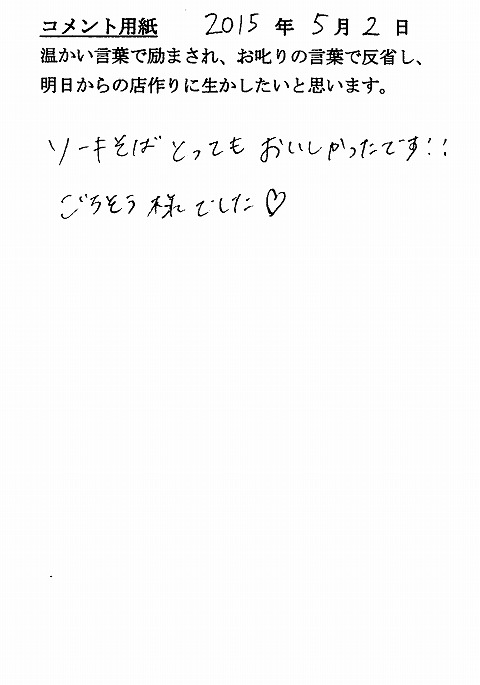 コメント用紙 2015 年 5 月 2 日
温かい言葉で励まされ、お叱りの言葉で反省し、
明日からの店作りに生かしたいと思います。
ソーキそば とっても おいしかったです!!
ごちそう様でした♡